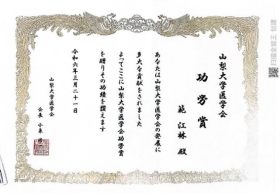 山梨大学医学会
功労賞
範江林 殿
あなたは山梨大学医学会の発展に
多大な貢献をされました
よってここに山梨大学医学会功労賞
を贈りその功績を讃えます
令和六年三月二十一日
山梨大学医学会
会長